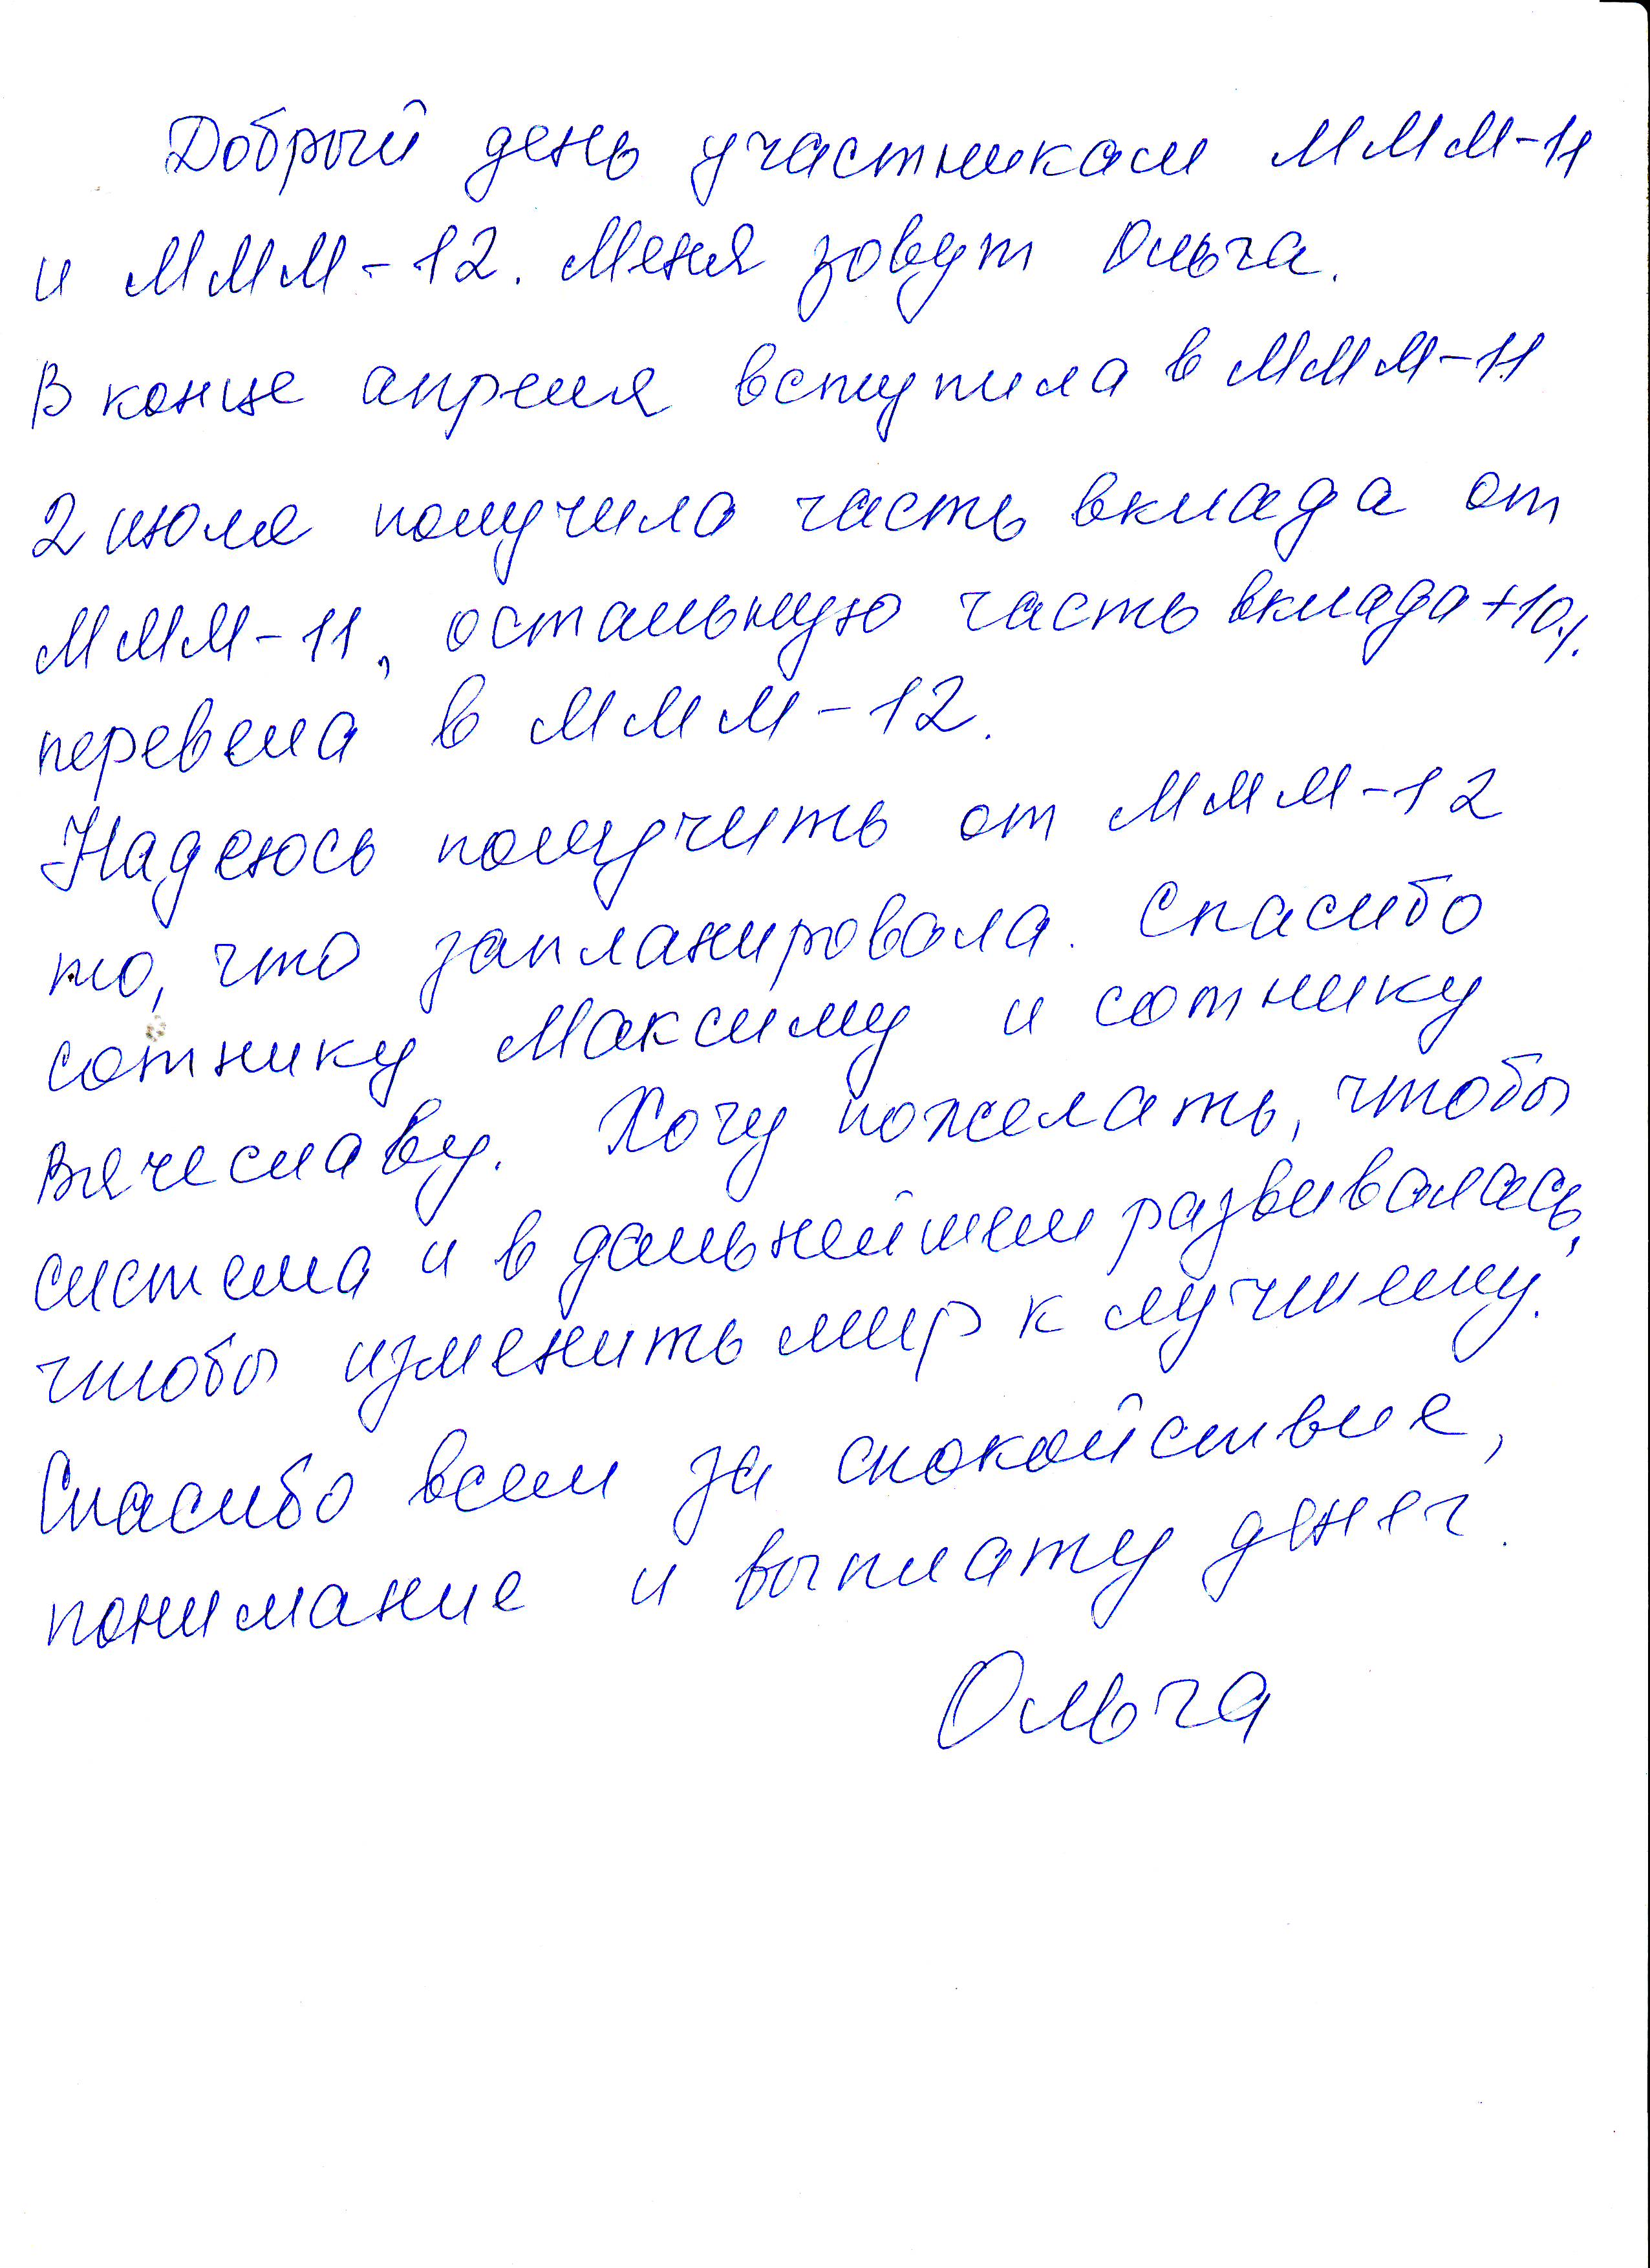 Добрый день участникам МММ-11
и МММ-12. Меня зовут Ольга.
В конце апреля вступила в МММ-11
2 июля получила часть вклада от
МММ-11, остальную часть вклада +10%
перевела в МММ-12.
Надеюсь получить от МММ-12
то, что запланировала. Спасибо
сотнику Максиму и сотнику
Вячеславу. Хочу пожелать, чтобы
система и в дальнейшем развивалась,
чтобы изменить мир к лучшему.
Спасибо всем за спокойствие,
понимание и выплату денег.
Ольга